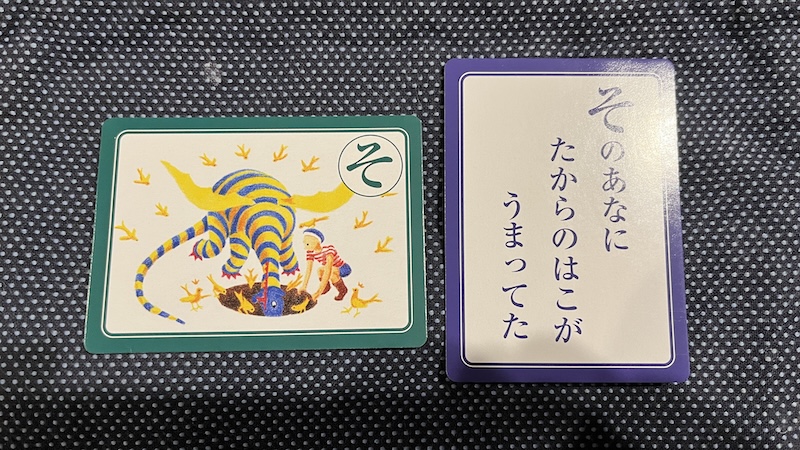 そ
そのあなに
たからのはこが
うまってた